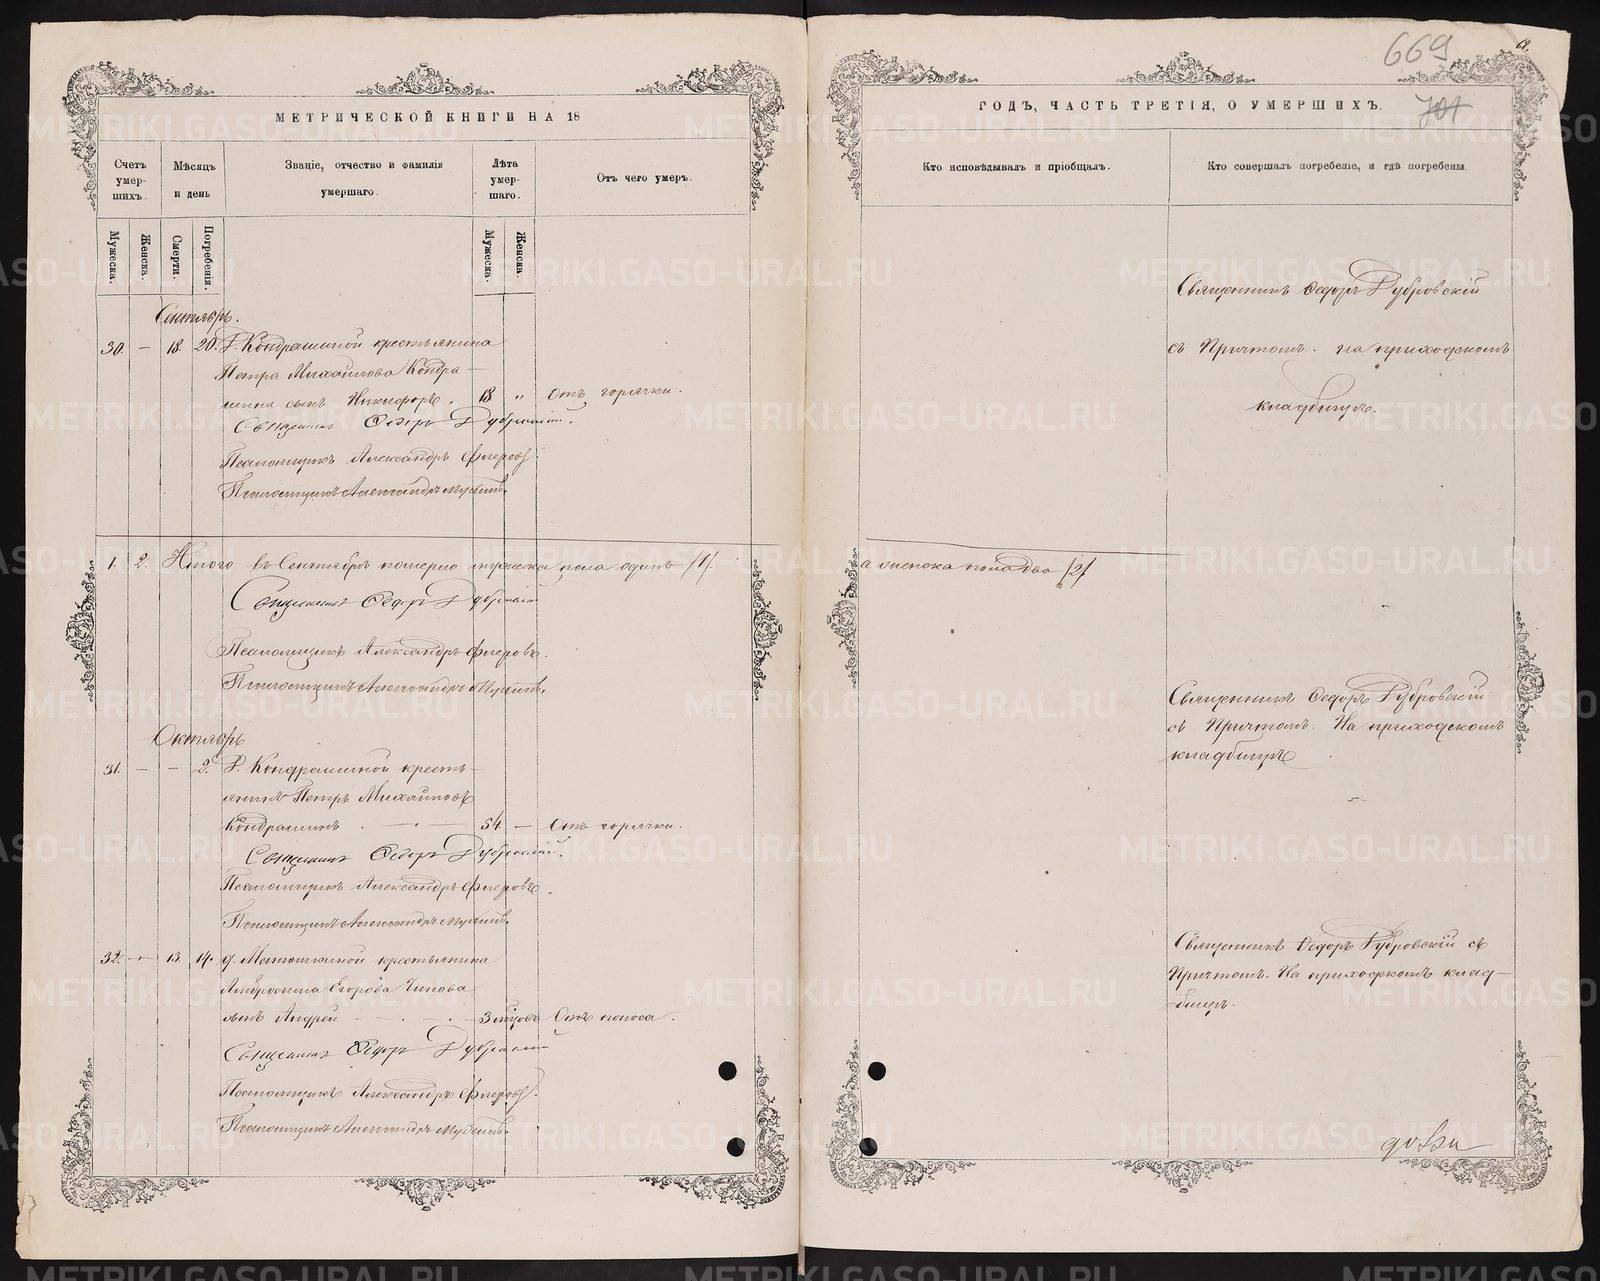 МЕТРИЧЕСКОЙ КНИГИ НА 18
Счетъ умер-шихъ.
Мѣсяцъ и день
Званіе, отчество и фамилія умершаго.
Лѣта умер-шаго.
Отъ чего умеръ.
Мужеска.
Женска.
Смерти.
Погребенія.
Мужеска.
Женска.
Сентябрь.
30. — 18. 20. Д. Кондрашиной крестьянина
Петра Михайлова Кондра-
шина сынъ Никифоръ. 18 " Отъ горячки.
Священникъ Ѳедоръ Дубровскій.
Псаломщикъ Александръ Флеровъ.
Псаломщикъ Александръ
1. 2. Итого въ Сентябрѣ померло мужеска пола одинъ /1/
Священникъ Ѳедоръ Дубровскій
Псаломщикъ Александръ Флеровъ.
Псаломщикъ Александръ
Октябрь
31. — — 2. Д. Кондрашиной кресть-
янинъ Петръ Михайловъ
Кондрашинъ 54. — Отъ горячки.
Священникъ Ѳедоръ Дубровскій.
Псаломщикъ Александръ Флеровъ.
Псаломщикъ Александръ
32. — 13. 14. д. крестьянина
Егорова
сынъ Андрей 3 мѣсцовъ Отъ поноса.
Священникъ Ѳедоръ Дубровскій
Псаломщикъ Александръ Флеровъ.
Псаломщикъ Александръ
669
701
ГОДЪ, ЧАСТЬ ТРЕТІЯ, О УМЕРШИХЪ.
Кто исповѣдывалъ и пріобщалъ.
Кто совершалъ погребеніе, и гдѣ погребены.
Священникъ Ѳедоръ Дубровскій
съ Причтомъ. на приходскомъ
кладбищѣ.
а женска пола два /2/
Священникъ Ѳедоръ Дубровскій
съ Причтомъ. На приходскомъ
кладбищѣ
Священникъ Ѳедоръ Дубровскій съ
Причтомъ. На приходскомъ клад-
бищѣ.
METRIKI.GASO-URAL.RU